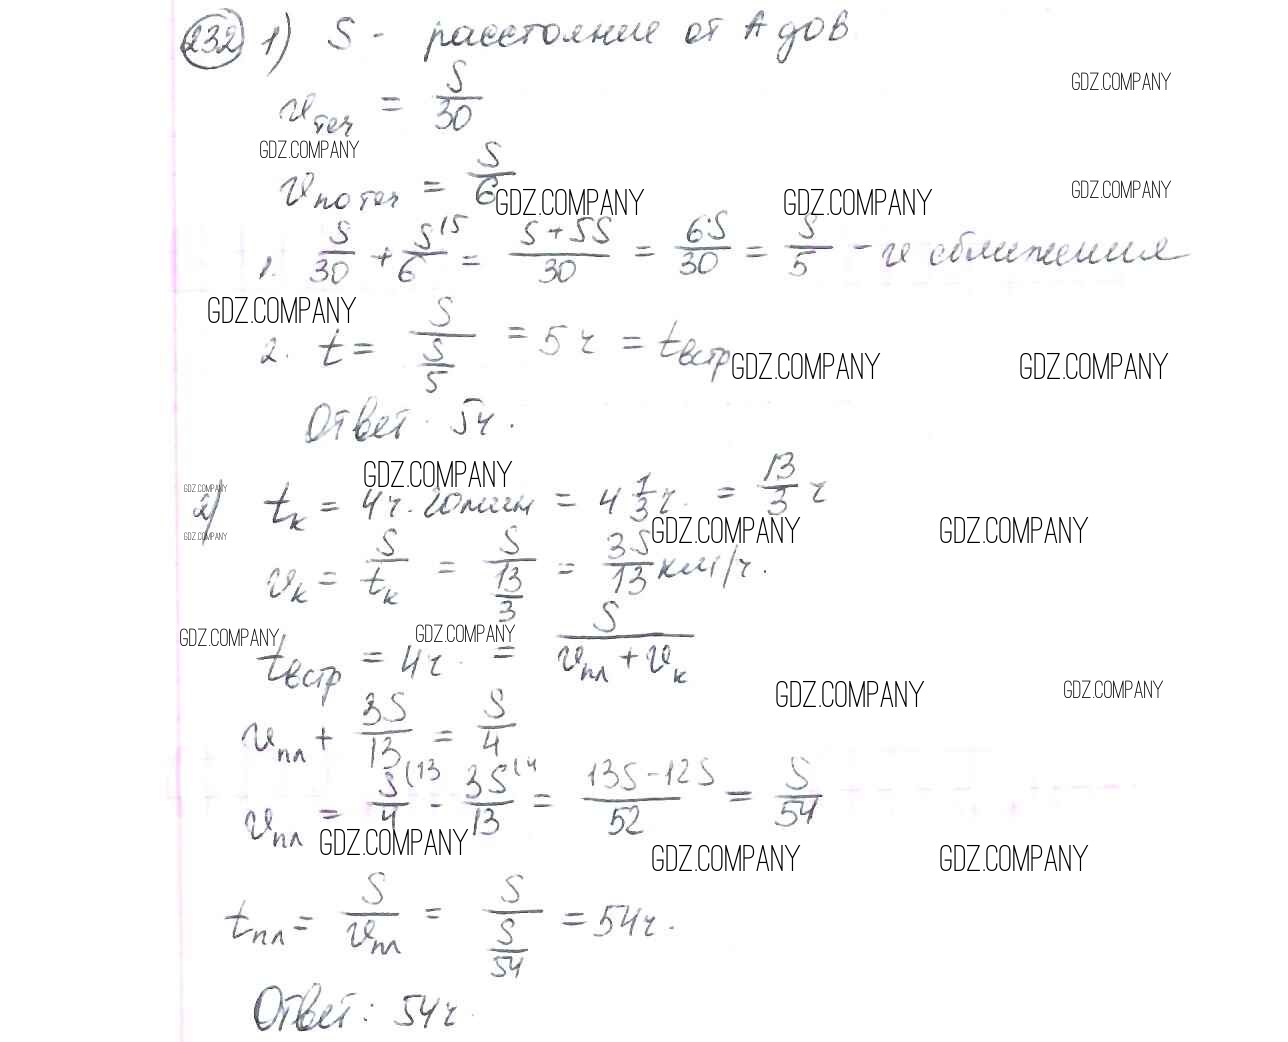 232 1) S - расстояние от А до В
GDZ.COMPANY
v теч = S/30
GDZ.COMPANY
v по теч = S/6
GDZ.COMPANY GDZ.COMPANY GDZ.COMPANY
1. S/30 + S/6 (5 = S+5S/30 = 6S/30 = S/5 - v сближения
GDZ.COMPANY
2. t = S/(S/5) = 5 ч = t встр
GDZ.COMPANY GDZ.COMPANY
Ответ: 5ч.
GDZ.COMPANY
GDZ.COMPANY
2) tк = 4ч. 20мин = 4 1/3 ч. = 13/3 ч
GDZ.COMPANY GDZ.COMPANY
GDZ.COMPANY
vк = S/tк = S/(13/3) = 3S/13 км/ч.
GDZ.COMPANY GDZ.COMPANY
t встр = 4ч. = S/(vпл + vк)
GDZ.COMPANY GDZ.COMPANY
vпл + 3S/13 = S/4
vпл = S/4 (13 - 3S/13 (4 = 13S-12S/52 = S/54
GDZ.COMPANY GDZ.COMPANY GDZ.COMPANY
tпл = S/vпл = S/(S/54) = 54ч.
Ответ: 54ч